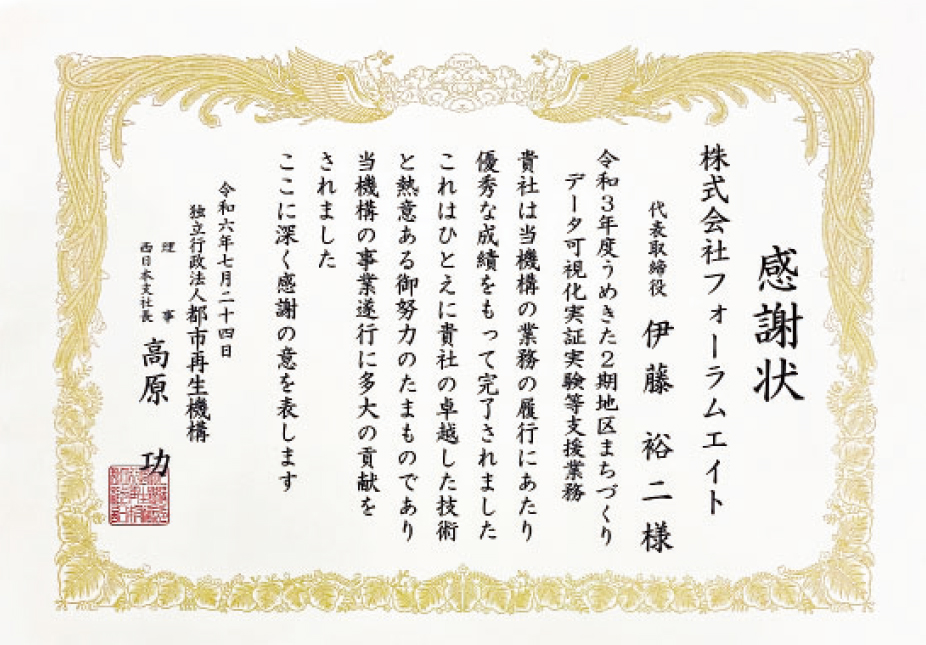 感謝状
株式会社フォーラムエイト
代表取締役 伊藤 裕二 様
令和3年度うめきた2期地区まちづくり
データ可視化実証実験等支援業務
貴社は当機構の業務の履行にあたり
優秀な成績をもって完了されました
これはひとえに貴社の卓越した技術
と熱意ある御努力のたまものであり
当機構の事業遂行に多大の貢献を
されました
ここに深く感謝の意を表します
令和六年七月二十四日
独立行政法人都市再生機構
理事
西日本支社長
高原 功